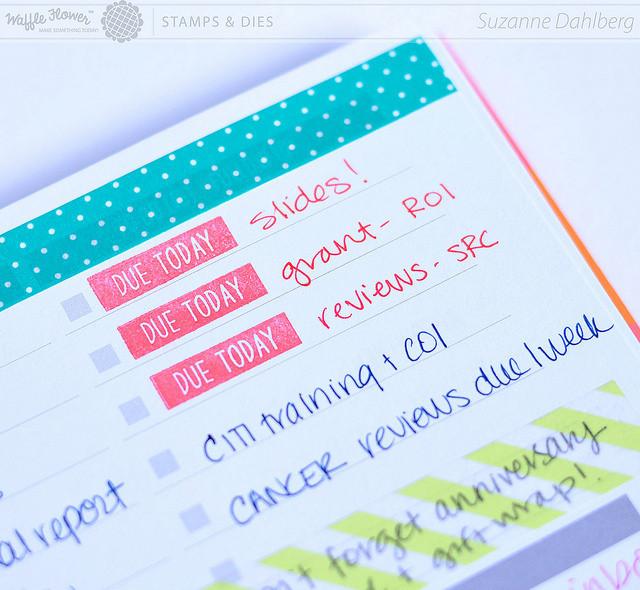 Waffle Flower™ STAMPS & DIES Suzanne Dahlberg
MAKE SOMETHING TODAY!
DUE TODAY slides!
DUE TODAY grant - RO1
DUE TODAY reviews - SRC
CITI training + COI
CANCER reviews due 1 week
al report
forget anniversary
+ gift wrap!